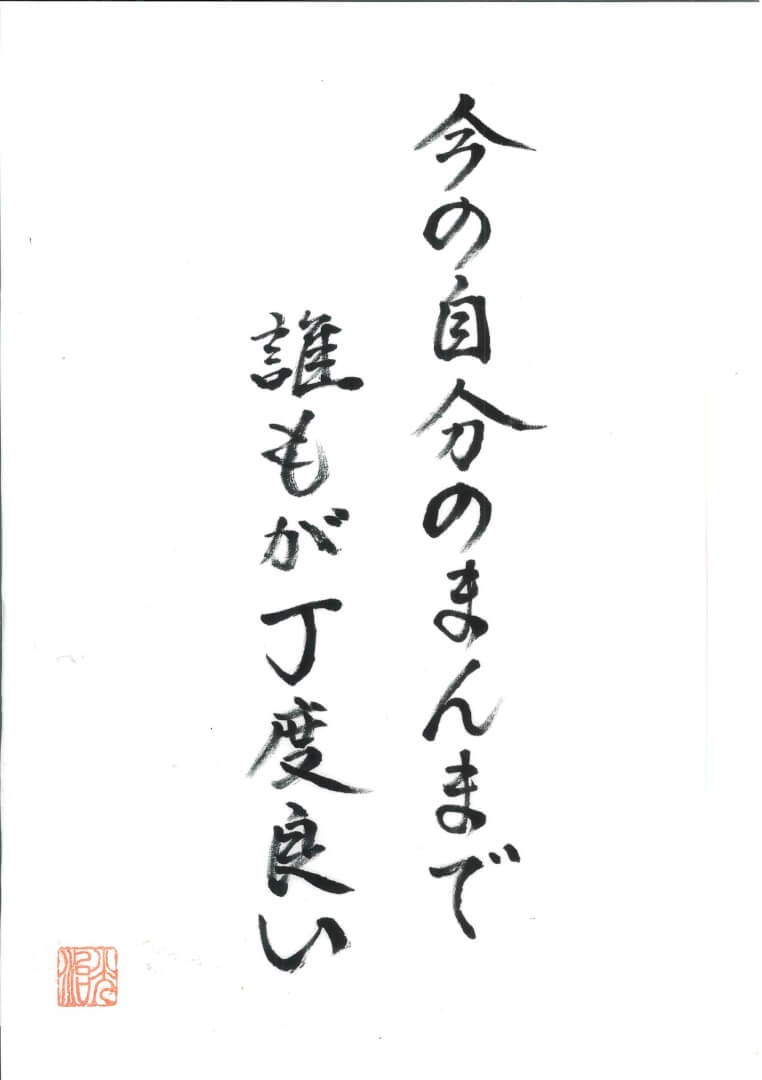 今の自分のまんまで
誰もが丁度良い